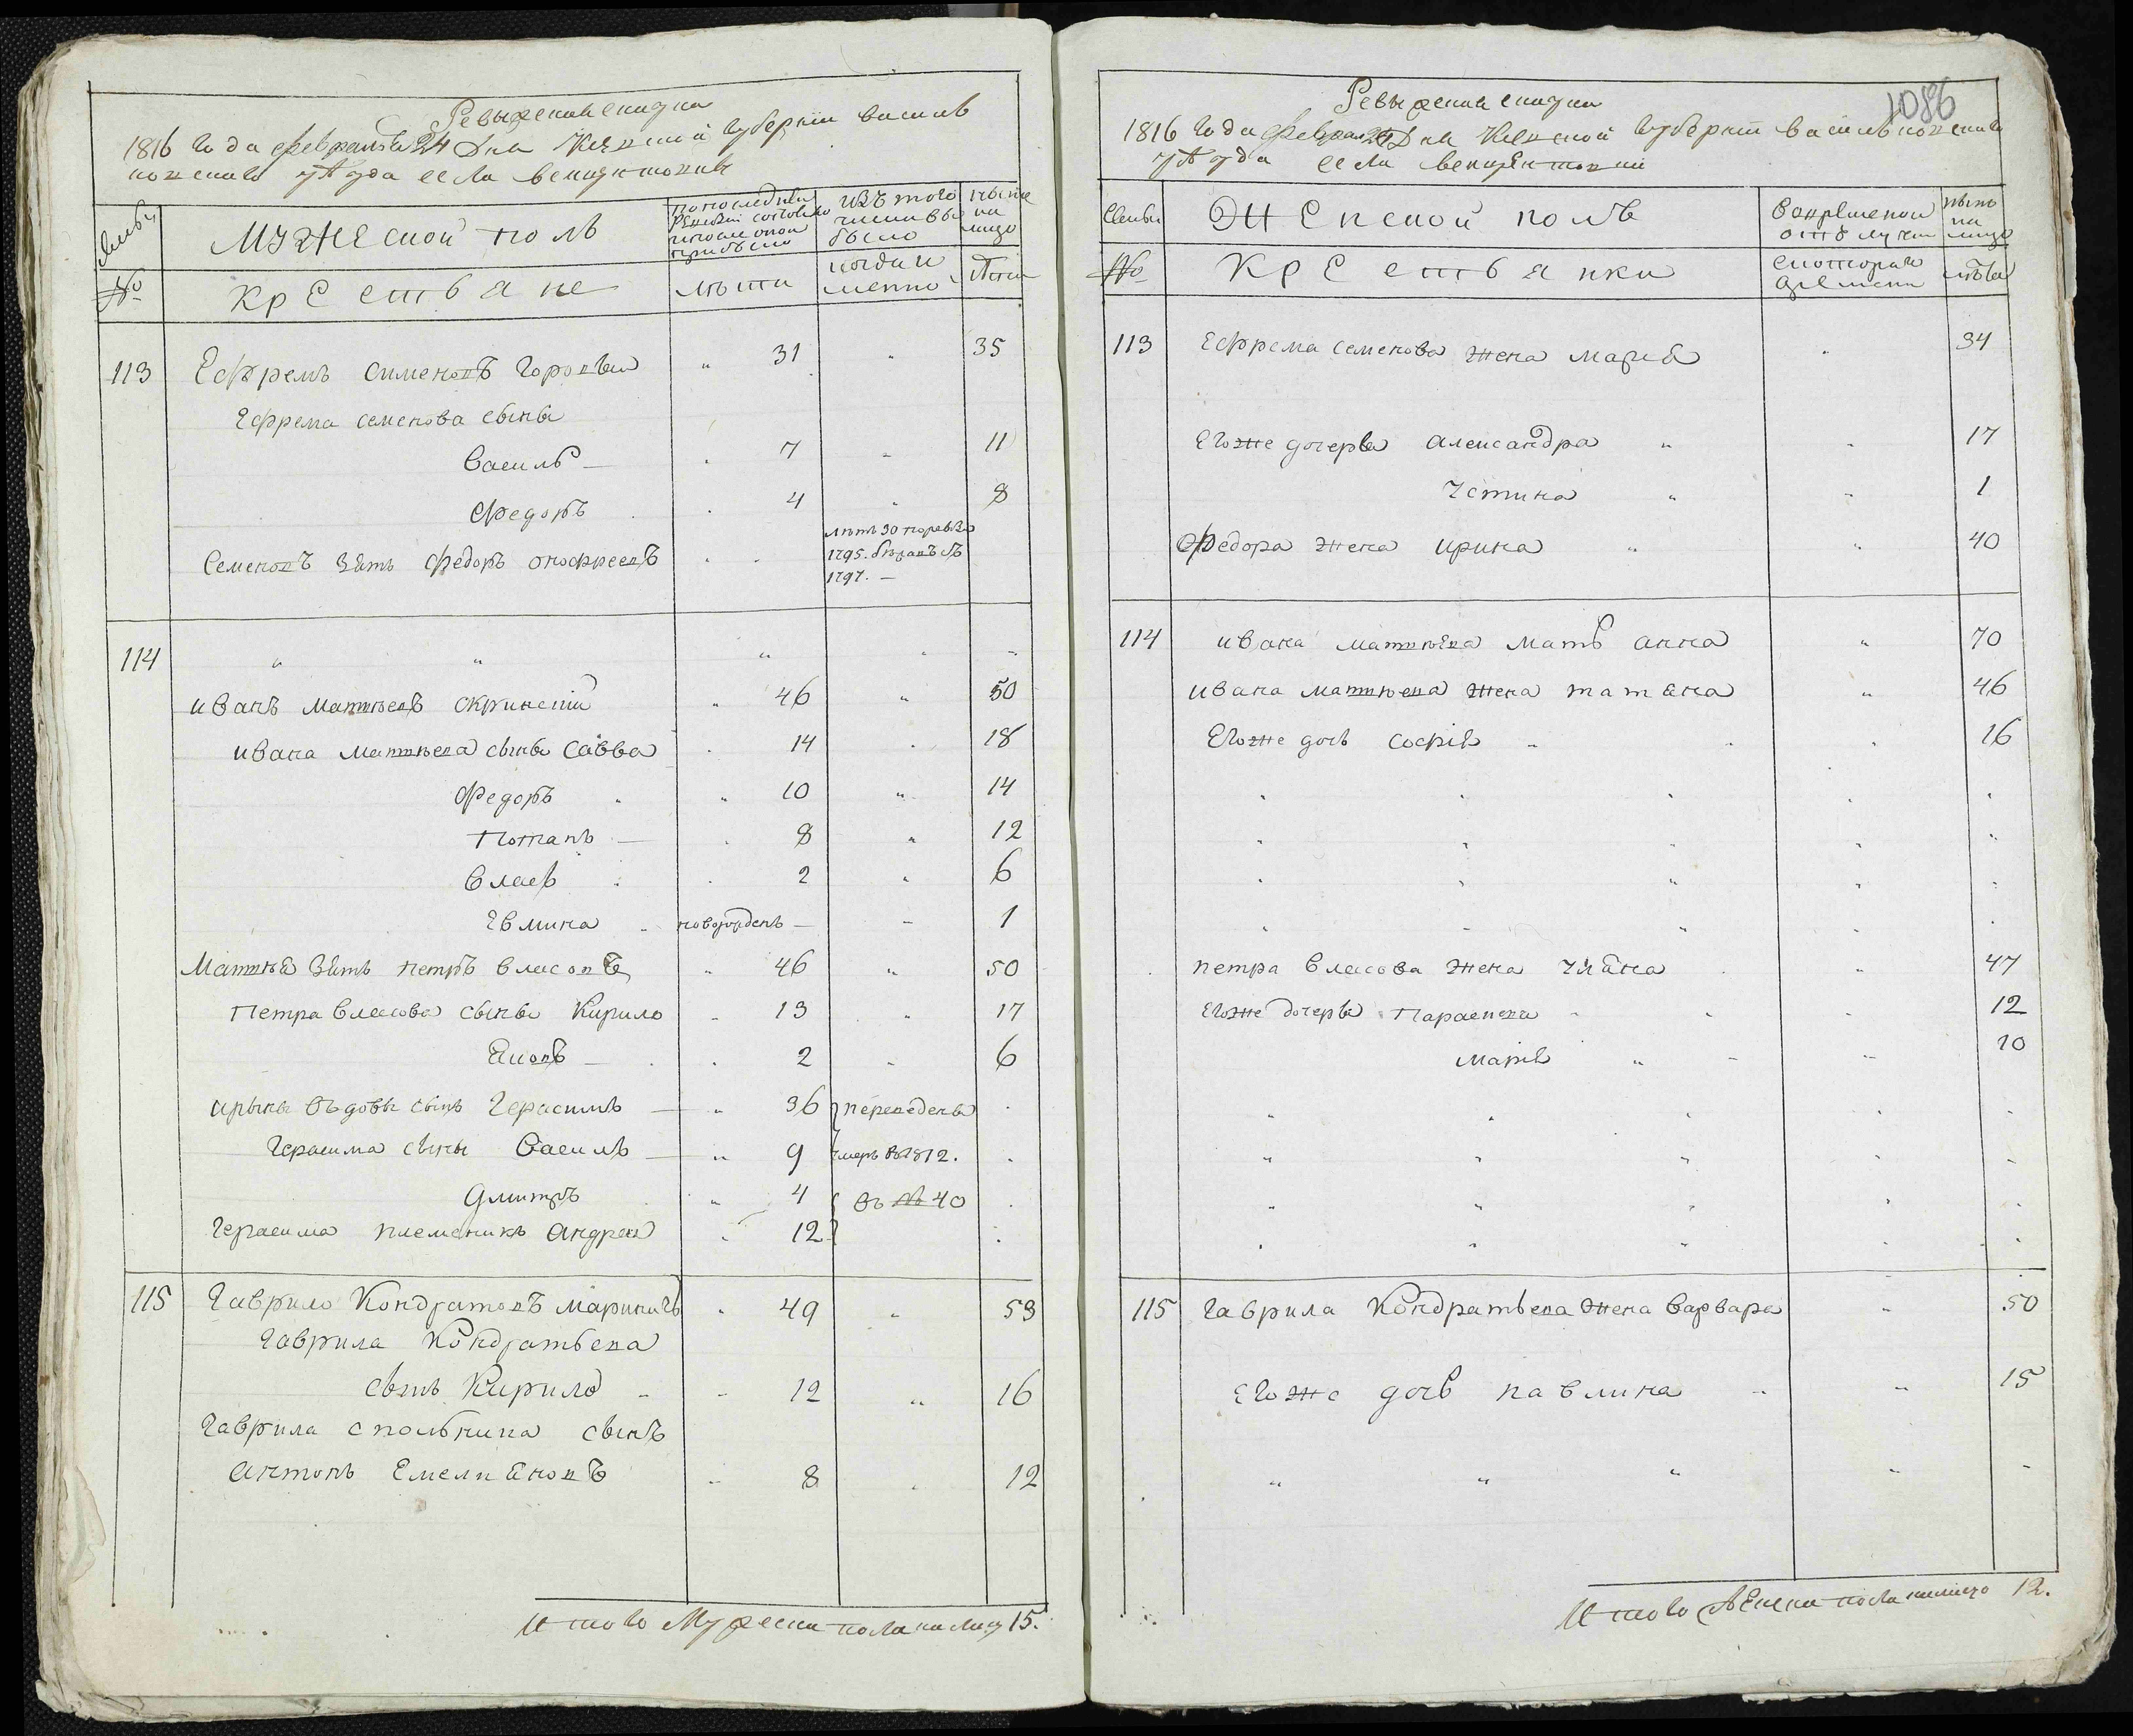 Ревызская сказка
1816 года февраля 24 дня Киевской губернии василь
ковского уезда села
семьи
Мужеской полъ
по последней ревизии состояло и после оной прибыло
изъ того числа выбыло
ныне на лицо
№
крестьяне
лета
когда именно
лета
113 Ефремъ Сименовъ " 31 " 35
Ефрема семенова сыны
Василь 7 " 11
Федоръ 4 " 8
Семеновъ зять Федоръ онофреевъ летъ 30 по ревизи 1795. бежалъ въ 1797.
114 " " " " "
иванъ матвеевъ " 46 " 50
ивана матвеева сыны Савва 14 18
Федоръ " 10 " 14
Потапъ 8 " 12
Власъ 2 " 6
новорожденъ 1
Матвея зять петръ власовъ " 46 " 50
Петра власова сыны Кирило 13 " 17
Яковъ 2 " 6
ирыны вдовы сынъ Герасимъ " 36 переведены
Герасима сыны Василь " 9 умеръ в 1812.
Дмитръ " 4 въ № 40
Герасима племеникъ андрей 12
115 Гаврило Кондратовъ 49 " 53
Гаврила Кондратьева
сынъ Кирило 12 " 16
Гаврила сынъ
антонъ Емельяновъ 8 12
Итого Мужеска пола на лицо 15.
1086
Ревызская сказка
1816 года февраля 24 дня Киевской губернии васильковского
уезда села
семьи
Женской полъ
во временной отлучке
ныне на лицо
№
Крестьянки
с которого времени
лета
113 Ефрема семенова жена мария 34
Егоже дочеря александра " 17
Устина " 1
Федора жена ирина " " 40
114 ивана матвеева мать анна " 70
ивана матвеева жена татяна " 46
Егоже дочь софия 16
петра власова жена уляна " 47
Егоже дочеря Параскева 12
Мария " 10
115 гаврила Кондратьева жена варвара " 50
Егоже дочь павлина " 15
" " " " "
Итого женска пола налицо 12.